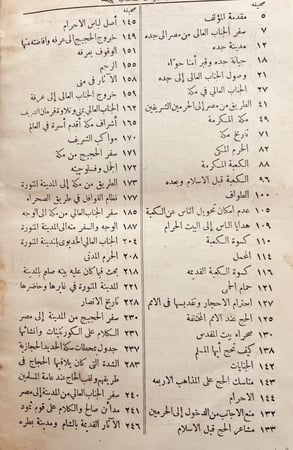 صحيفه
٥ مقدمة المؤلف
٧ سفر الجناب العالى من مصر الى جده
١٢ مدينة جده
١٨ جبانة جده وقبر أمنا حواء
٢١ وصول الجناب العالى إلى جده
٢٧ الجناب العالى فى مكة
٤١ الطريق من مصر إلى الحرمين الشريفين
٤٩ مكة المكرمة
٧١ تاريخ مكة
٨٣ الحرم المكى
٨٨ الكعبة المكرمة
٩٦ الكعبة قبل الاسلام وبعده
١٠٠ الطواف
١٠٥ عدم امكان تحويل الناس عن الكعبة
١٠٩ هدايا الناس إلى البيت الحرام
١١٠ كسوة الكعبة
١١٤ المحمل
١١٦ كسوة الكعبة القديمه
١٢١ حمام الحمى
١٢٧ احترام الاحجار وتقديسها فى الامم
١٢٦ الحج عند الامم المختلفة
١٣٠ صخرة بيت المقدس
١٣٨ كيف تحج أيها المسلم
١٤٢ الجنايات
١٤٣ مناسك الحج على المذاهب الاربعه
١٤٤ الاحرام
١٣٢ منع الاجانب من الدخول إلى الحرمين
١٣٣ مشاعر الحج قبل الاسلام
صحيفه
١٤٥ أصل لباس الاحرام
١٤٩ خروج الحجيج الى عرفه وافاضته منها
١٥١ الوقوف بعرفه
١٥٥ الرجم
١٥٨ الآثار فى منى
١٥٩ خروج الجناب العالى إلى عرفة
١٦٠ الجناب العالى بمنى وتلاوة فرمان الشريف
١٦٥ أشراف مكة أقدم أسرة فى العالم
١٧٠ مواكب الشريف
١٧١ سفر الحجيج من مكة
١٧٢ الجمل وفلوحيته
١٧٣ الطريق من مكة إلى المدينة المنورة
١٧٧ نظام القوافل فى طريق الصحراء
١٨٥ سفر الجناب العالى من مكة الى الوجه
١٩٧ الوجه والسفر منه الى المدينة المنورة
٢٠٤ الجناب العالى الخديوى بالمدينة المنورة
٢٣٤ الحرم المدنى
٢١٨ بحث فيما كان عليه بيته صلعم بالمدينة
٢٥٢ المدينة المنورة فى غابرها وحاضرها
٢٢٥ تاريخ الانصار
٢٣٠ سفر الحجيج من المدينة إلى مصر
٢٣١ الكلام على الكورنتينات وانشائها
٢٣٧ جدول بمحطات سكة الحديد الحجازية
٢٨٣ الشدة التى كان يلاقيها الحجاج فى
طريقهم ولقب الحاج عند عامة المسلمين
٢٤٠ سفر الجناب العالى من المدينة الى مصر
٢٤١ مدائن صالح والكلام على قوم ثمود
٢٤٦ الآثار القديمة بالشام ومدينة بطره